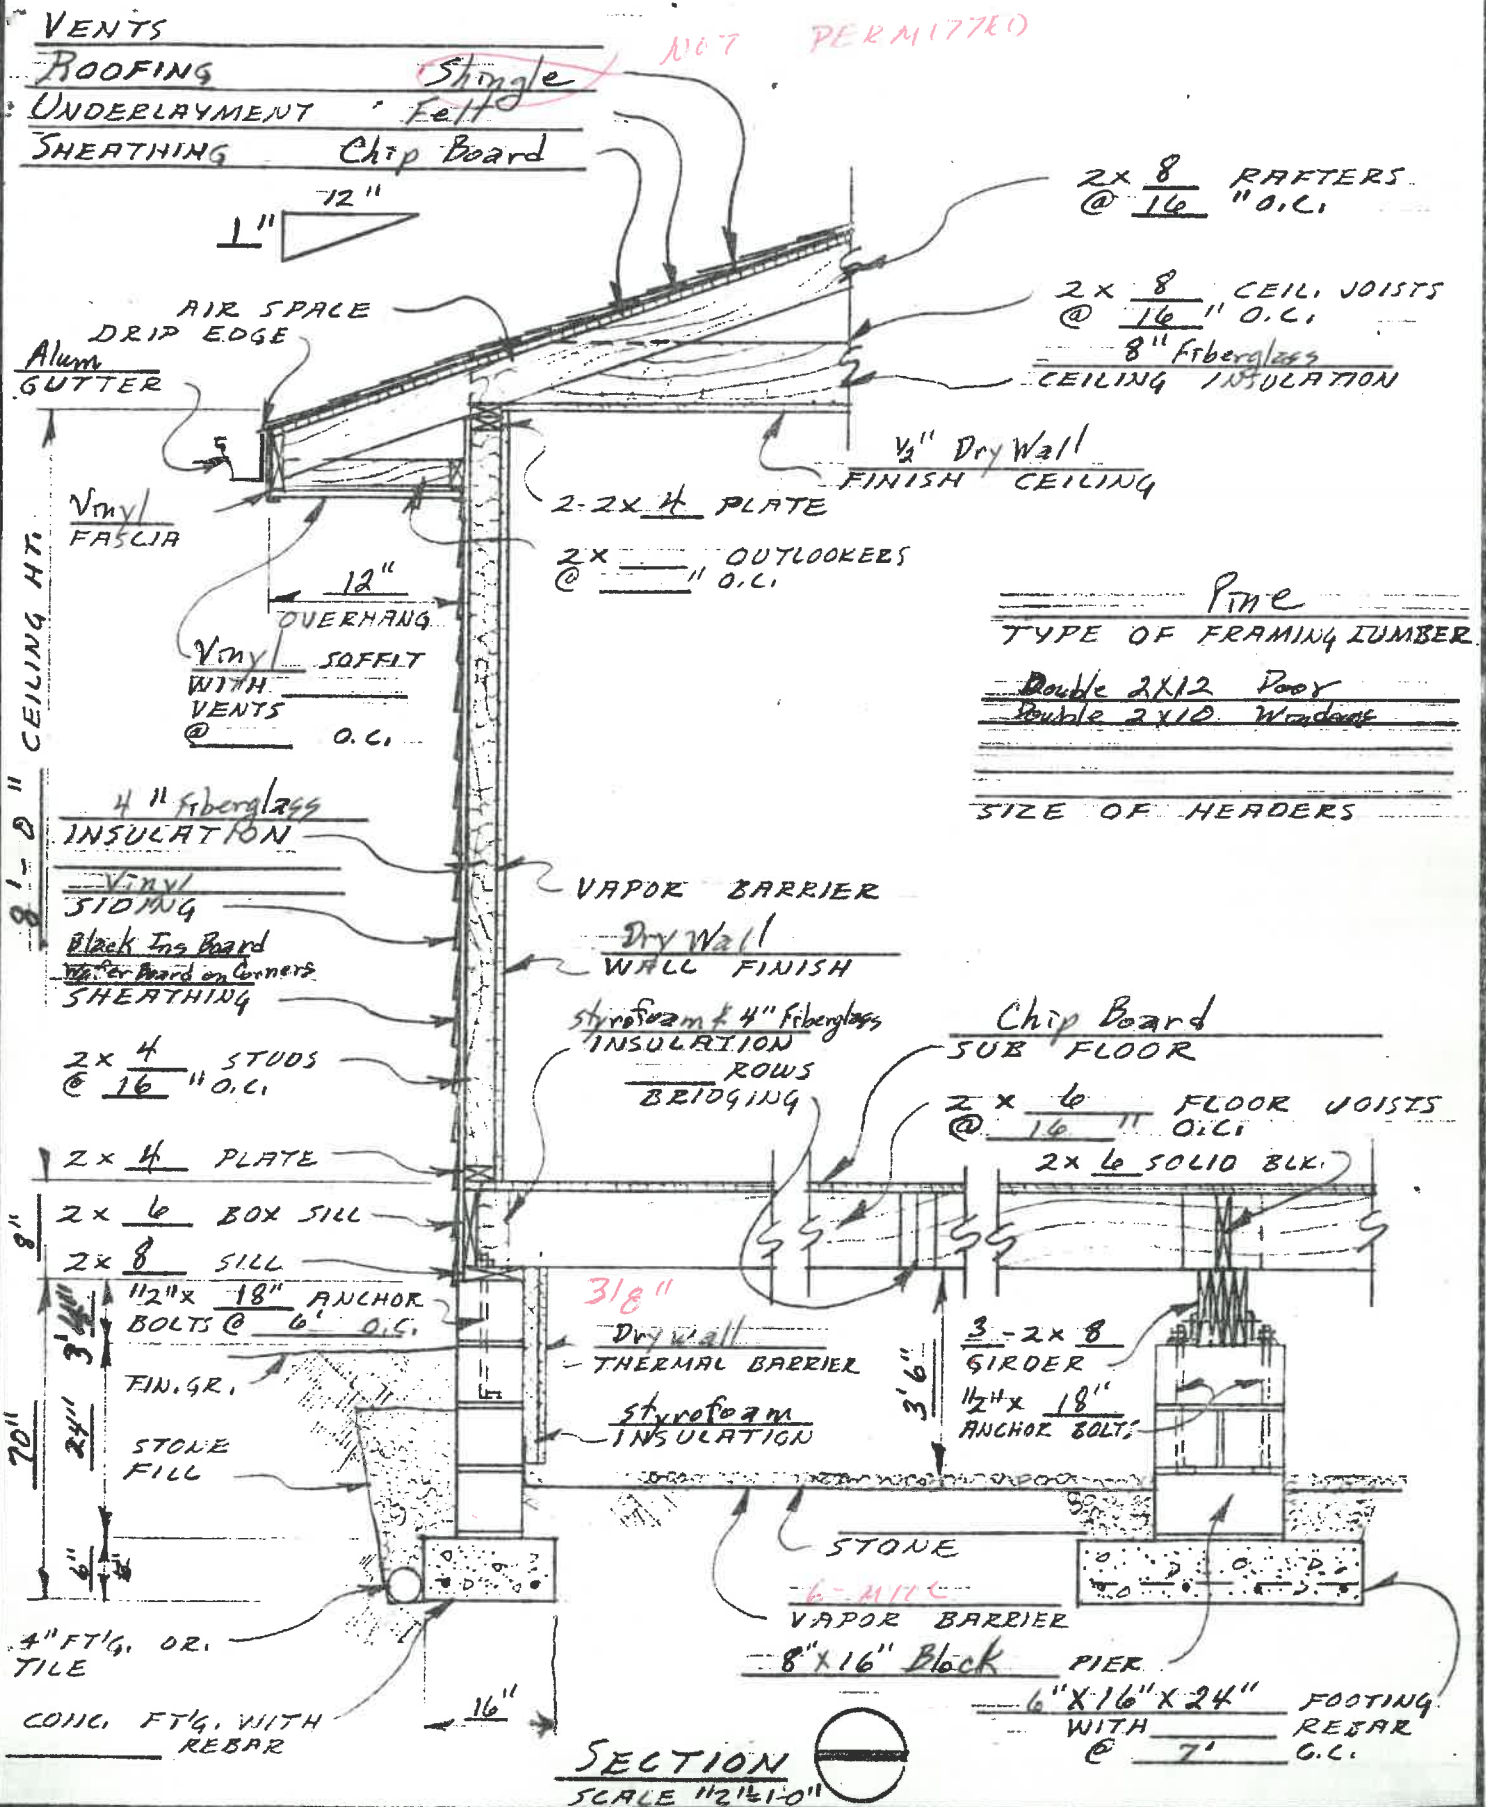 VENTS
NOT PERMITTED
ROOFING Shingle
UNDERLAYMENT Felt
SHEATHING Chip Board
12"
1"
2x 8 RAFTERS
@ 16 " O.C.
AIR SPACE
DRIP EDGE
2 x 8 CEIL. JOISTS
@ 16 " O.C.
8" Fiberglass
CEILING INSULATION
Alum
GUTTER
1/2" Dry Wall
FINISH CEILING
Vinyl
FASCIA
2-2x 4 PLATE
2x OUTLOOKERS
@ " O.C.
12"
OVERHANG
Vinyl SOFFIT
WITH
VENTS
@ O.C.
8'-0" CEILING HT.
Pine
TYPE OF FRAMING LUMBER
Double 2X12 Door
Double 2X10 Windows
SIZE OF HEADERS
4" Fiberglass
INSULATION
Vinyl
SIDING
Black Ins Board
Wafer Board on Corners
SHEATHING
VAPOR BARRIER
Dry Wall
WALL FINISH
styrofoam & 4" Fiberglass
INSULATION
ROWS
BRIDGING
Chip Board
SUB FLOOR
2 x 4 STUDS
@ 16 " O.C.
2 x 6 FLOOR JOISTS
@ 16 " O.C.
2x 6 SOLID BLK.
2x 4 PLATE
2 x 6 BOX SILL
2x 8 SILL
8"
1/2"x 18" ANCHOR
BOLTS @ 6' O.C.
3/8"
Drywall
THERMAL BARRIER
styrofoam
INSULATION
3'6"
3-2x8
GIRDER
1/2"x 18"
ANCHOR BOLTS
FIN. GR.
70"
24"
STONE
FILL
6"
STONE
6-MILL
VAPOR BARRIER
4" FT'G. DR.
TILE
8"X16" Block PIER
6"X16"X24" FOOTING
WITH REBAR
@ 7' O.C.
16"
CONC. FT'G. WITH
REBAR
SECTION
SCALE 1/2"=1'-0"